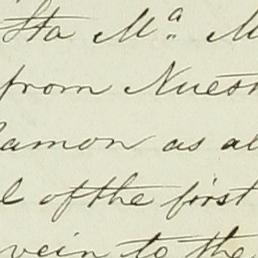 Sta Mª. M
from Nuest
amon as al
l of the first
vein to the